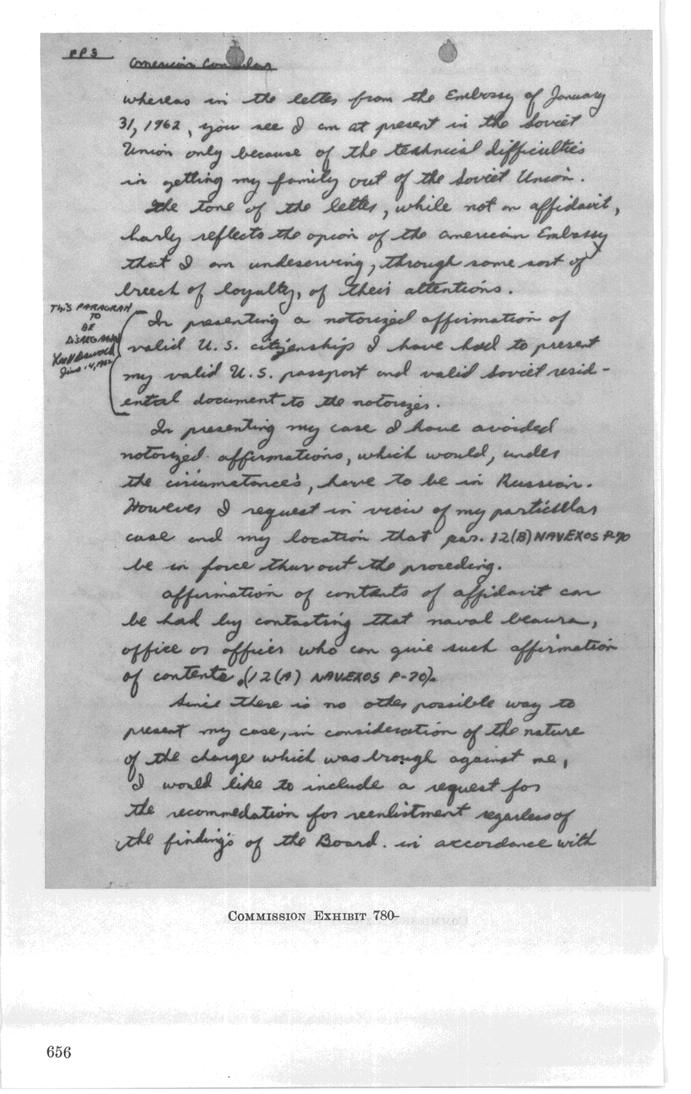 PP 3
American Consular
whereas in the letter from the Embassy of January
31, 1962, you see I am at present in the Soviet
Union only because of the technical difficulties
in getting my family out of the Soviet Union.
The tone of the letter, while not an affidavit,
harly reflects the opion of the American Embassy
that I am undeserving, through some sort of
breech of loyalty, of their attentions.
THIS PARAGRAPH
TO
BE
DISREGARD
June 14, 1962
In presenting a notorized affirmation of
valid U.S. citizenship I have had to present
my valid U.S. passport and valid Soviet resid-
ental document to the notorizer.
In presenting my case I have avoided
notorized affirmations, which would, under
the circumstances, have to be in Russian.
However I request in view of my particular
case and my location that par. 12(B) NAVEXOS P-70
be in force thur out the proceding.
affirmation of contents of affidavit can
be had by contacting that naval beaura,
office or officer who can give such affirmation
of contents. (12(A) NAVEXOS P-70).
Since there is no other possible way to
present my case, in consideration of the nature
of the charge which was brough against me,
I would like to include a request for
the recommedation for reenlistment regarless of
the findings of the Board. in accordance with
COMMISSION EXHIBIT 780-
656